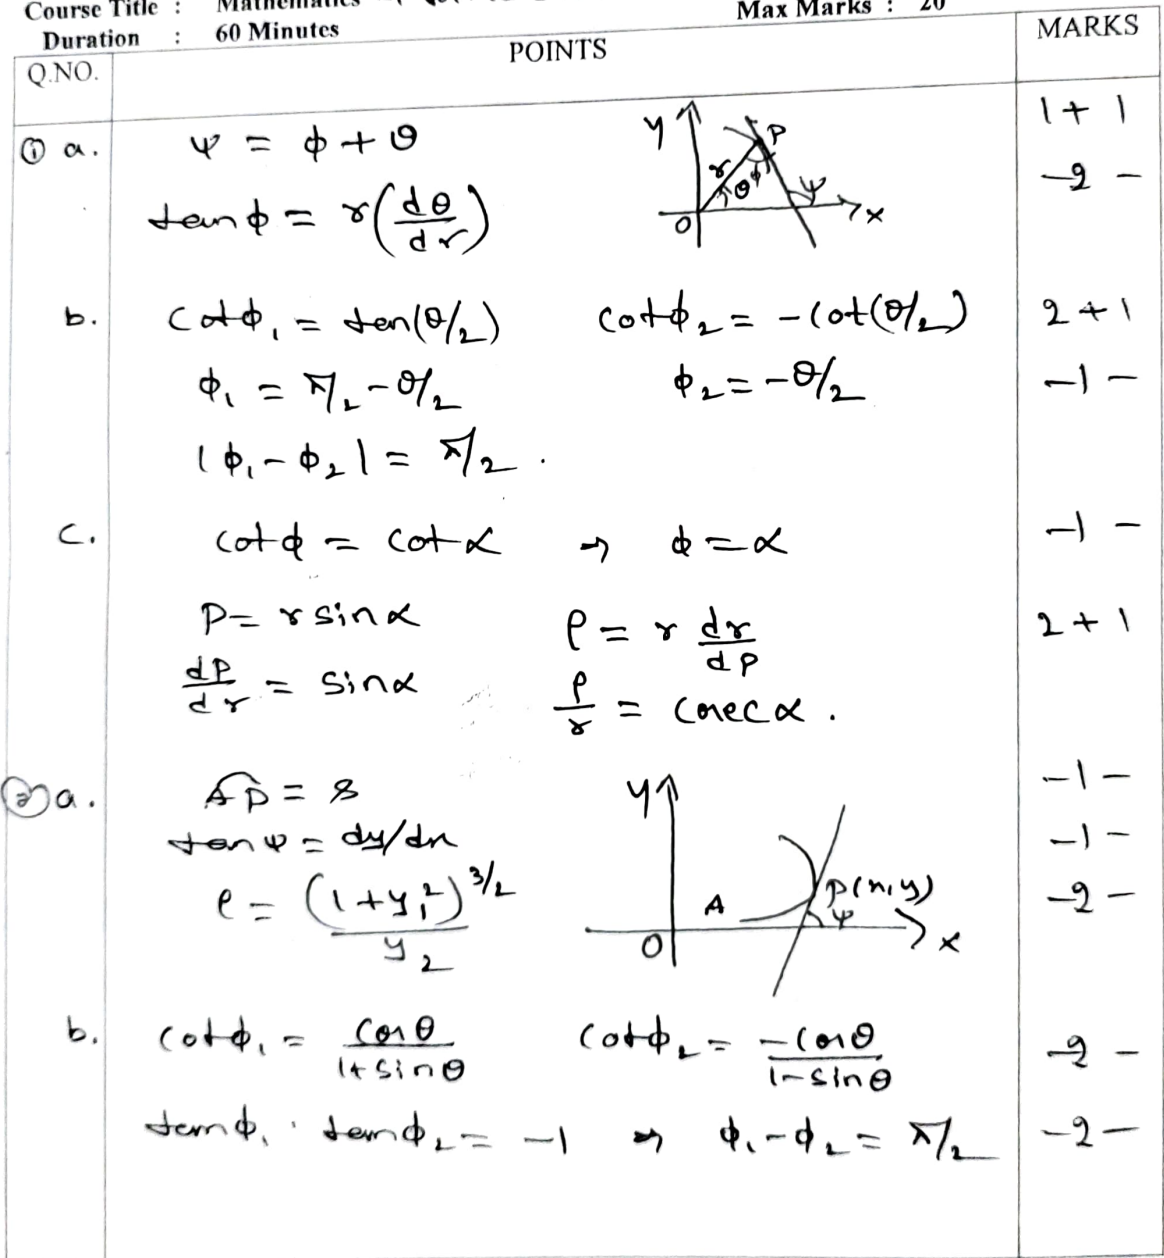 Course Title : Mathematics
Max Marks : 20
Duration : 60 Minutes
Q.NO. POINTS MARKS
① a. ψ = ϕ + θ 1 + 1
tanϕ = r(dθ/dr) -2-
y P r θ ϕ ψ O x
b. cotϕ₁ = tan(θ/2) cotϕ₂ = -cot(θ/2) 2 + 1
ϕ₁ = π/2 - θ/2 ϕ₂ = -θ/2 -1-
|ϕ₁ - ϕ₂| = π/2.
c. cotϕ = cotα ⇒ ϕ = α -1-
P = r sinα ρ = r dr/dp 2 + 1
dP/dr = sinα ρ/r = cosecα.
② a. AP = s -1-
tanψ = dy/dx -1-
ρ = (1 + y₁²)^3/2 / y₂ -2-
y A P(x,y) ψ O x
b. cotϕ₁ = cosθ/1+sinθ cotϕ₂ = -cosθ/1-sinθ -2-
tanϕ₁ · tanϕ₂ = -1 ⇒ ϕ₁ - ϕ₂ = π/2 -2-